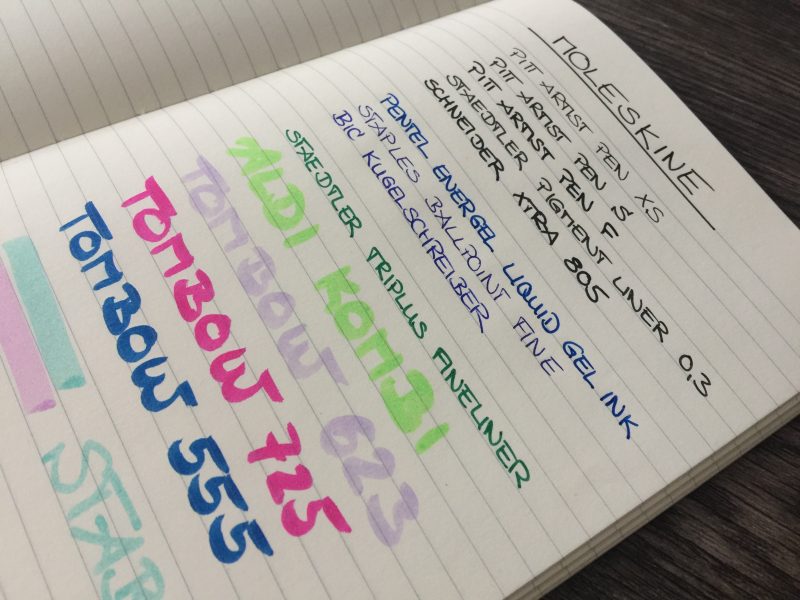 MOLESKINE
PITT ARTIST PEN XS
PITT ARTIST PEN S
PITT ARTIST PEN F
STAEDTLER PIGMENT LINER 0,3
SCHNEIDER XTRA 805
PENTEL ENERGEL LIQUID GEL INK
STAPLES BALLPOINT FINE
BIC KUGELSCHREIBER
STAEDTLER TRIPLUS FINELINER
ALDI KOMBI
TOMBOW 623
TOMBOW 725
TOMBOW 555